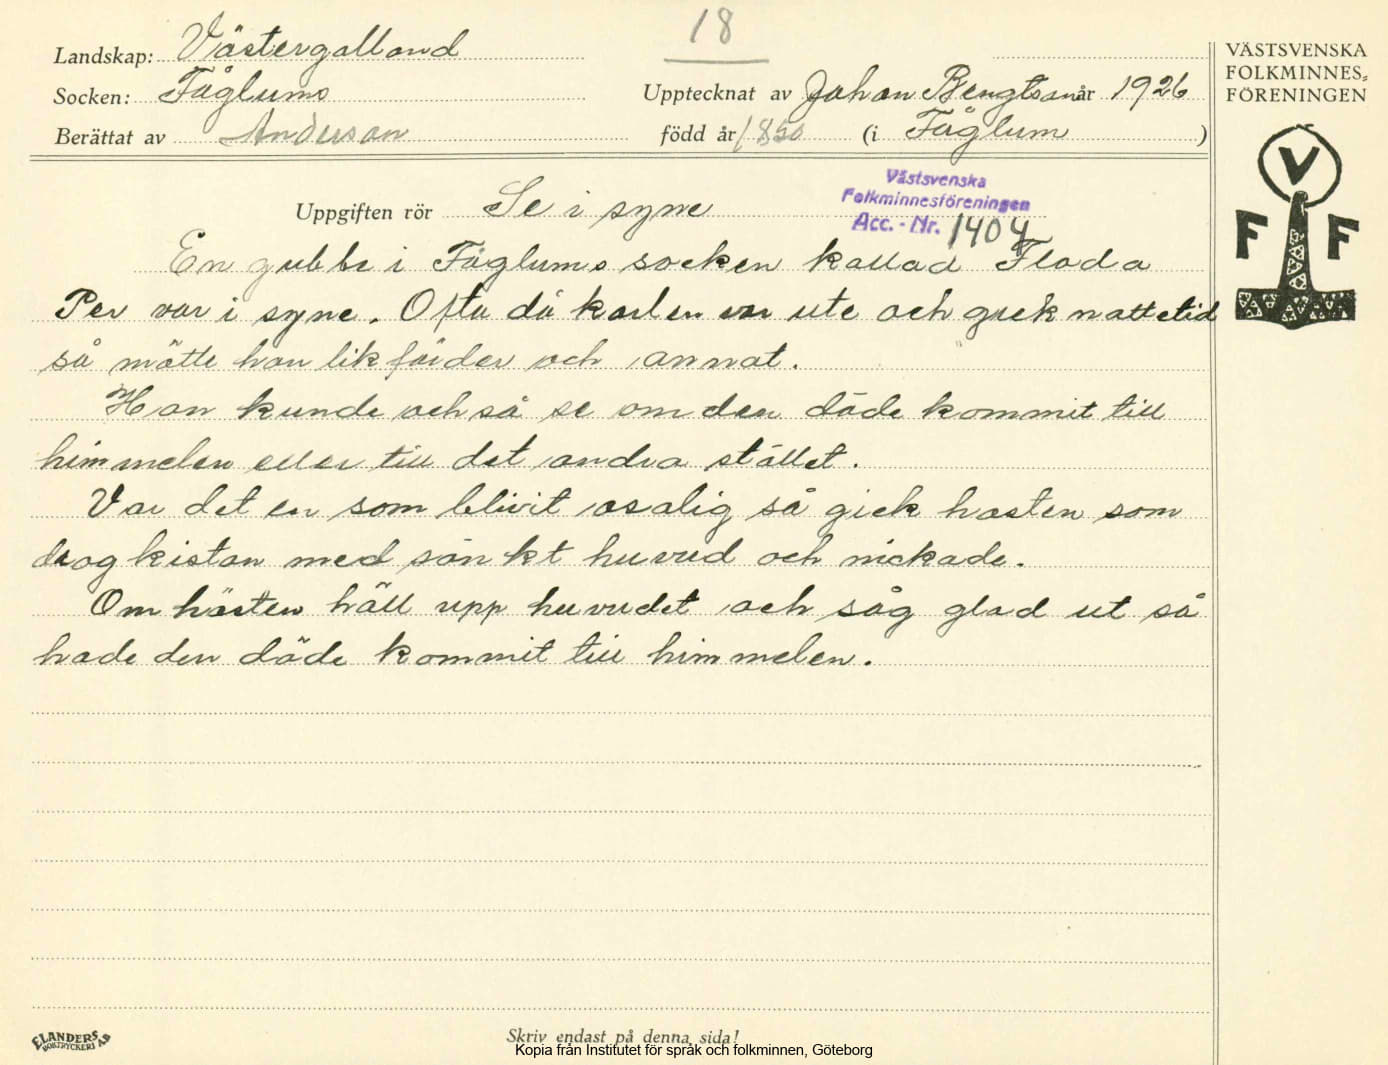 18
Landskap: Västergotland
VÄSTSVENSKA
FOLKMINNES-
FÖRENINGEN
Socken: Fåglums
Upptecknat av Johan Bengtson år 1926
Berättat av Anderson född år 1850 (i Fåglum )
Västsvenska
Folkminnesföreningen
Acc. - Nr. 1404
V
F F
Uppgiften rör Se i syne
En gubbe i Fåglums socken kallad Floda
Per var i syne. Ofta då karlen var ute och gick nattetid
så mötte han likfärder och annat.
Han kunde också se om den döde kommit till
himmelen eller till det andra stället.
Var det en som blivit osalig så gick hästen som
drog kistan med sänkt huvud och nickade.
Om hästen höll upp huvudet och såg glad ut så
hade den döde kommit till himmelen.
ELANDERS
BOKTRYCKERI AB
Skriv endast på denna sida!
Kopia från Institutet för språk och folkminnen, Göteborg